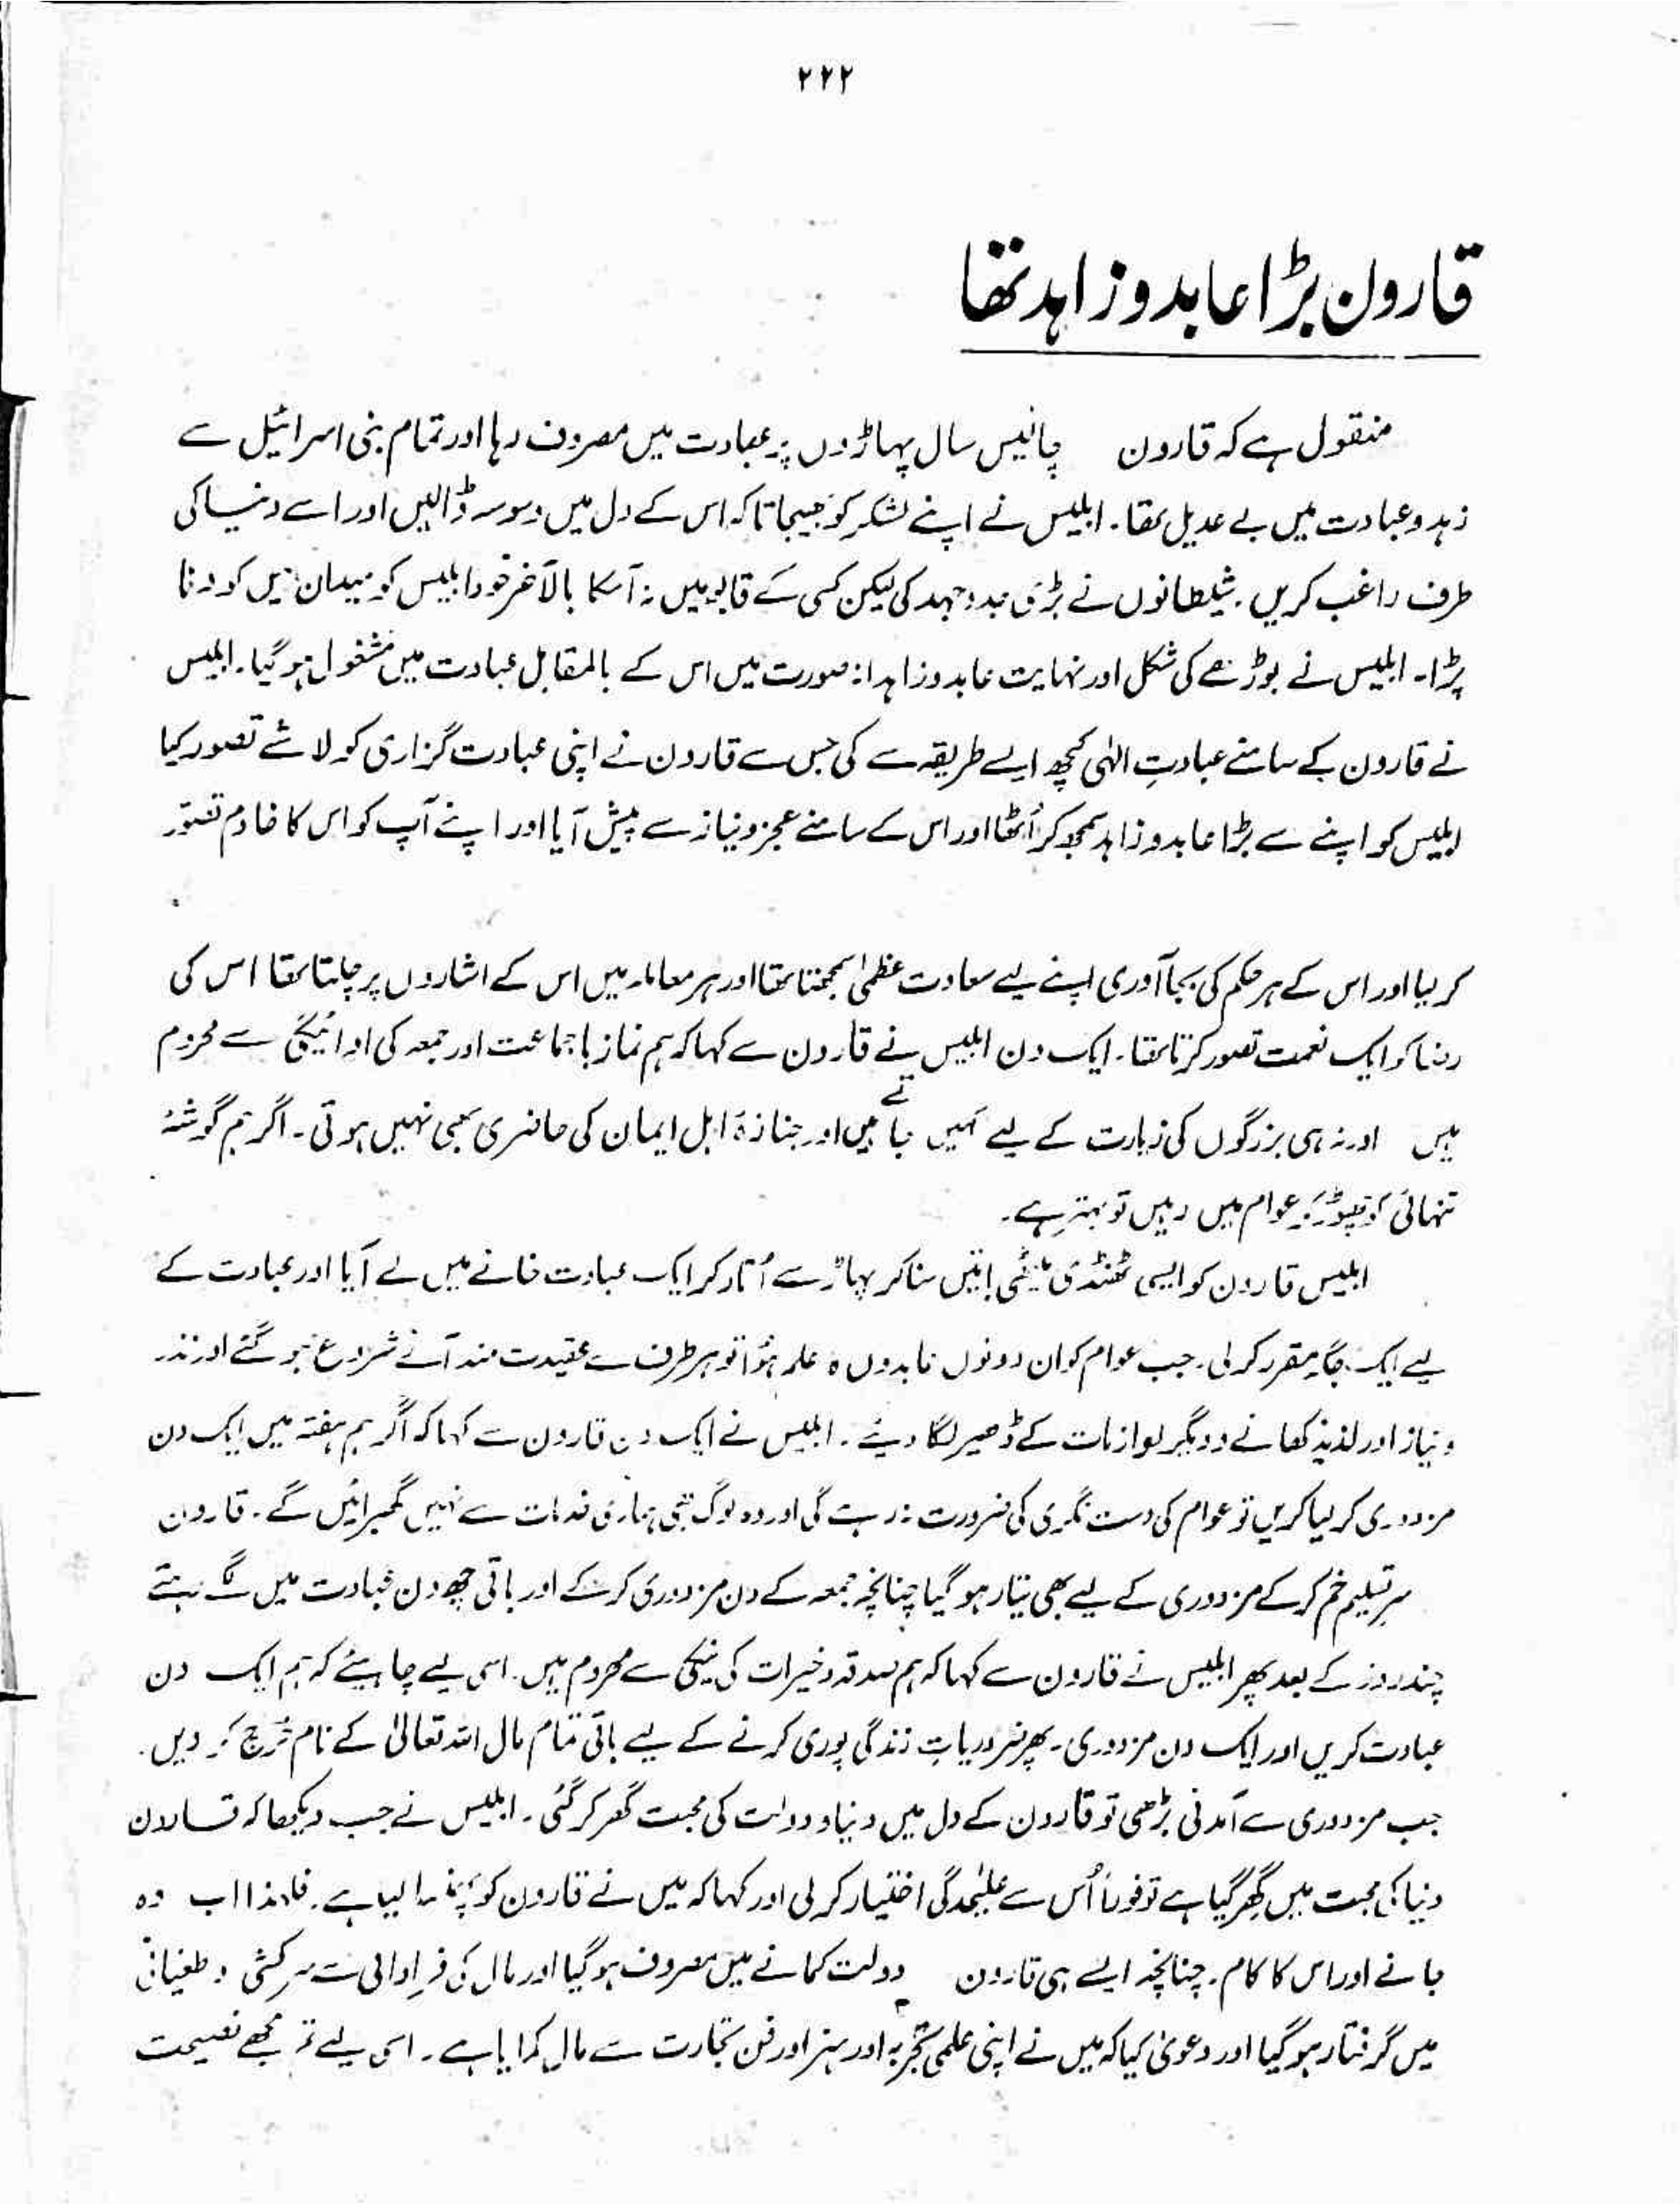 ۲۲۲
قارون بڑا عابد و زاہد تھا
منقول ہے کہ قارون چالیس سال پہاڑوں پر عبادت میں مصروف رہا اور تمام بنی اسرائیل سے
زہد و عبادت میں بے عدیل تھا۔ ابلیس نے اپنے لشکر کو بھیجا تاکہ اس کے دل میں وسوسہ ڈالیں اور اسے دنیا کی
طرف راغب کریں۔ شیطانوں نے بڑی جدوجہد کی لیکن کسی کے قابو میں نہ آسکا بالآخر خود ابلیس کو میدان میں کودنا
پڑا۔ ابلیس نے بوڑھے کی شکل اور نہایت عابد و زاہدانہ صورت میں اس کے بالمقابل عبادت میں مشغول ہو گیا۔ ابلیس
نے قارون کے سامنے عبادتِ الٰہی کچھ ایسے طریقہ سے کی جس سے قارون نے اپنی عبادت گزاری کو لاشے تصور کیا
ابلیس کو اپنے سے بڑا عابد و زاہد سمجھ کر اُٹھا اور اس کے سامنے عجز و نیاز سے پیش آیا اور اپنے آپ کو اس کا خادم تصوّر
کر لیا اور اس کے ہر حکم کی بجا آوری اپنے لیے سعادت عظمیٰ سمجھتا تھا اور ہر معاملہ میں اس کے اشاروں پر چلتا تھا اس کی
رضا کو ایک نعمت تصور کرتا تھا۔ ایک دن ابلیس نے قارون سے کہا کہ ہم نماز باجماعت اور جمعہ کی ادائیگی سے محروم
ہیں اور نہ ہی بزرگوں کی زیارت کے لیے کہیں جاتے ہیں اور جنازۂ اہل ایمان کی حاضری بھی نہیں ہوتی۔ اگر ہم گوشۂ
تنہائی کو چھوڑ کر عوام میں رہیں تو بہتر ہے۔
ابلیس قارون کو ایسی ٹھنڈی میٹھی باتیں سنا کر پہاڑ سے اُتار کر ایک عبادت خانے میں لے آیا اور عبادت کے
لیے ایک جگہ مقرر کر لی۔ جب عوام کو ان دونوں عابدوں کا علم ہؤا تو ہر طرف سے عقیدت مند آنے شروع ہو گئے اور نذر
و نیاز اور لذیذ کھانے و دیگر لوازمات کے ڈھیر لگا دیئے۔ ابلیس نے ایک دن قارون سے کہا کہ اگر ہم ہفتہ میں ایک دن
مزدوری کر لیا کریں تو عوام کی دست نگری کی ضرورت نہ رہے گی اور وہ لوگ بھی ہماری خدمات سے نہیں گھبرائیں گے۔ قارون
سرتسلیم خم کر کے مزدوری کے لیے بھی تیار ہو گیا چنانچہ جمعہ کے دن مزدوری کرتے اور باقی چھ دن عبادت میں لگے رہتے
چند روز کے بعد پھر ابلیس نے قارون سے کہا کہ ہم صدقہ و خیرات کی نیکی سے محروم ہیں۔ اسی لیے چاہیئے کہ ہم ایک دن
عبادت کریں اور ایک دن مزدوری۔ پھر ضروریاتِ زندگی پوری کرنے کے لیے باقی تمام مال اللہ تعالیٰ کے نام خرچ کر دیں۔
جب مزدوری سے آمدنی بڑھی تو قارون کے دل میں دنیا و دولت کی محبت گھر کر گئی۔ ابلیس نے جب دیکھا کہ قارون
دنیا کی محبت میں گھِر گیا ہے تو فوراً اُس سے علیٰحدگی اختیار کر لی اور کہا کہ میں نے قارون کو پھنسا لیا ہے۔ فلہٰذا اب وہ
جانے اور اس کا کام۔ چنانچہ ایسے ہی قارون دولت کمانے میں مصروف ہو گیا اور مال کی فراوانی سے سرکشی و طغیانی
میں گرفتار ہو گیا اور دعویٰ کیا کہ میں نے اپنی علمی تجربہ اور ہنر اور فن تجارت سے مال کمایا ہے۔ اسی لیے تم مجھے نصیحت